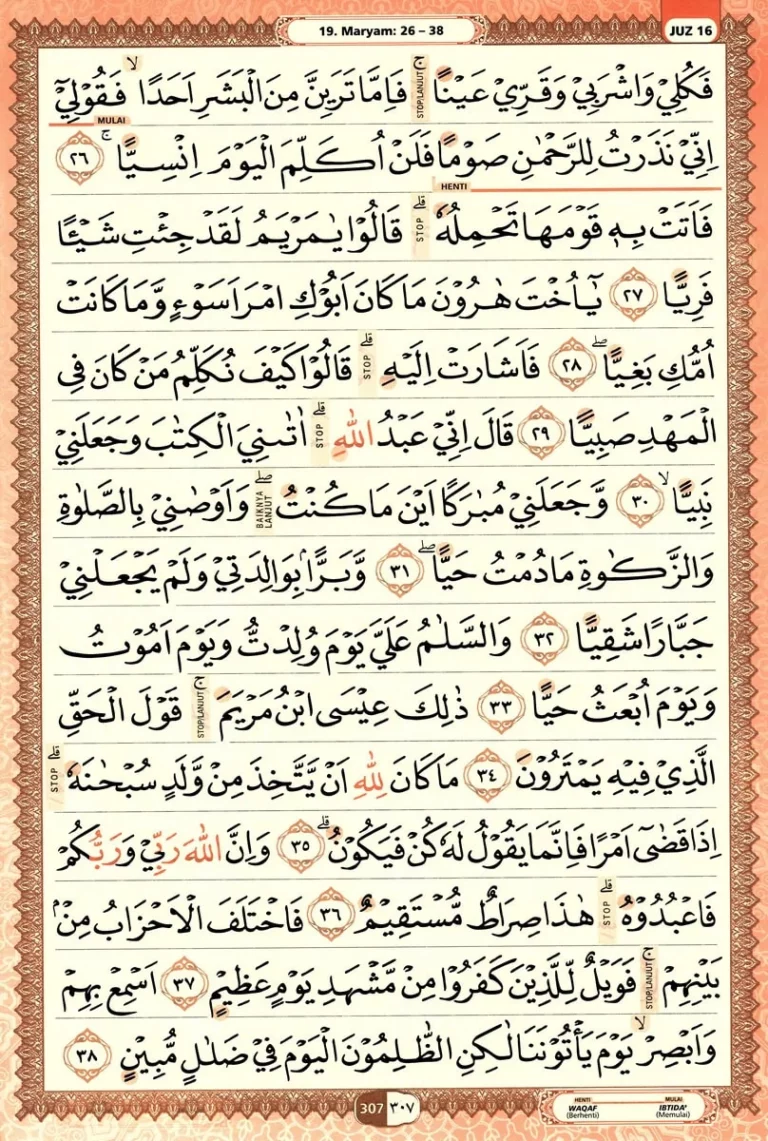 19. Maryam: 26 – 38
JUZ 16
فَكُلِيْ وَاشْرَبِيْ وَقَرِّيْ عَيْنًاۚ STOP/LANJUT فَاِمَّا تَرَيِنَّ مِنَ الْبَشَرِ اَحَدًاۙ فَقُوْلِيْٓ
MULAI
اِنِّيْ نَذَرْتُ لِلرَّحْمٰنِ صَوْمًا فَلَنْ اُكَلِّمَ الْيَوْمَ اِنْسِيًّاۚ ٢٦
HENTI
فَاَتَتْ بِهٖ قَوْمَهَا تَحْمِلُهٗۗ STOP قَالُوْا يٰمَرْيَمُ لَقَدْ جِئْتِ شَيْـًٔا
فَرِيًّا ٢٧ يٰٓاُخْتَ هٰرُوْنَ مَا كَانَ اَبُوْكِ امْرَاَ سَوْءٍ وَّمَا كَانَتْ
اُمُّكِ بَغِيًّاۖ ٢٨ فَاَشَارَتْ اِلَيْهِۗ STOP قَالُوْا كَيْفَ نُكَلِّمُ مَنْ كَانَ فِى
الْمَهْدِ صَبِيًّا ٢٩ قَالَ اِنِّيْ عَبْدُ اللّٰهِۗ STOP اٰتٰىنِيَ الْكِتٰبَ وَجَعَلَنِيْ
نَبِيًّاۙ ٣٠ وَّجَعَلَنِيْ مُبٰرَكًا اَيْنَ مَا كُنْتُۖ BAIKNYA LANJUT وَاَوْصٰنِيْ بِالصَّلٰوةِ
وَالزَّكٰوةِ مَا دُمْتُ حَيًّاۖ ٣١ وَّبَرًّاۢ بِوَالِدَتِيْ وَلَمْ يَجْعَلْنِيْ
جَبَّارًا شَقِيًّا ٣٢ وَالسَّلٰمُ عَلَيَّ يَوْمَ وُلِدْتُّ وَيَوْمَ اَمُوْتُ
وَيَوْمَ اُبْعَثُ حَيًّا ٣٣ ذٰلِكَ عِيْسَى ابْنُ مَرْيَمَۚ STOP/LANJUT قَوْلَ الْحَقِّ
الَّذِيْ فِيْهِ يَمْتَرُوْنَ ٣٤ مَا كَانَ لِلّٰهِ اَنْ يَّتَّخِذَ مِنْ وَّلَدٍ سُبْحٰنَهٗۗ STOP
اِذَا قَضٰٓى اَمْرًا فَاِنَّمَا يَقُوْلُ لَهٗ كُنْ فَيَكُوْنُۗ ٣٥ وَاِنَّ اللّٰهَ رَبِّيْ وَرَبُّكُمْ
فَاعْبُدُوْهُۗ STOP هٰذَا صِرَاطٌ مُّسْتَقِيْمٌ ٣٦ فَاخْتَلَفَ الْاَحْزَابُ مِنْۢ
بَيْنِهِمْۚ STOP/LANJUT فَوَيْلٌ لِّلَّذِيْنَ كَفَرُوْا مِنْ مَّشْهَدِ يَوْمٍ عَظِيْمٍ ٣٧ اَسْمِعْ بِهِمْ
وَاَبْصِرْۙ يَوْمَ يَأْتُوْنَنَا لٰكِنِ الظّٰلِمُوْنَ الْيَوْمَ فِيْ ضَلٰلٍ مُّبِيْنٍ ٣٨
307 ٣٠٧
HENTI MULAI
WAQAF IBTIDA'
(Berhenti) (Memulai)